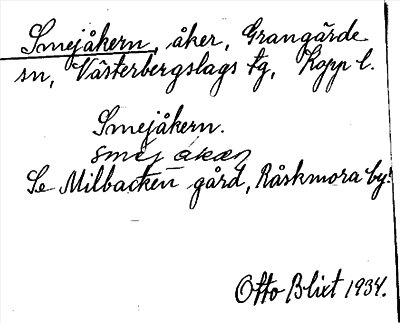 Smejåkern, åker, Grangärde
sn, Västerbergslags tg, Kopp l.
Smejåkern.
smej åkæn
Se Milbacken gård, Råskmora by.
Otto Blixt 1934.